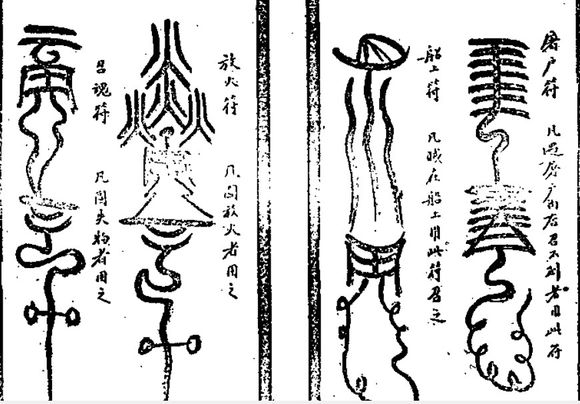 屠户符 凡遇屠户召不到者用此符
船上符 凡賊在船上用此符召之
放火符 凡問放火者用之
召魂符 凡問失物者用之